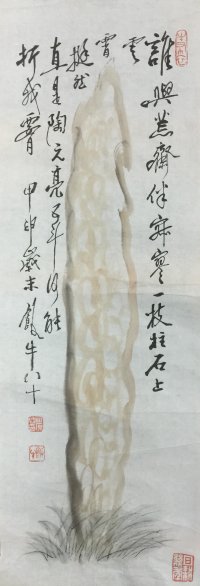 誰與荒齋伴寂寥一枝柱石上
雲
霄
挺然
直是陶元亮五斗何能
折我腰
甲申歲末 牛八十